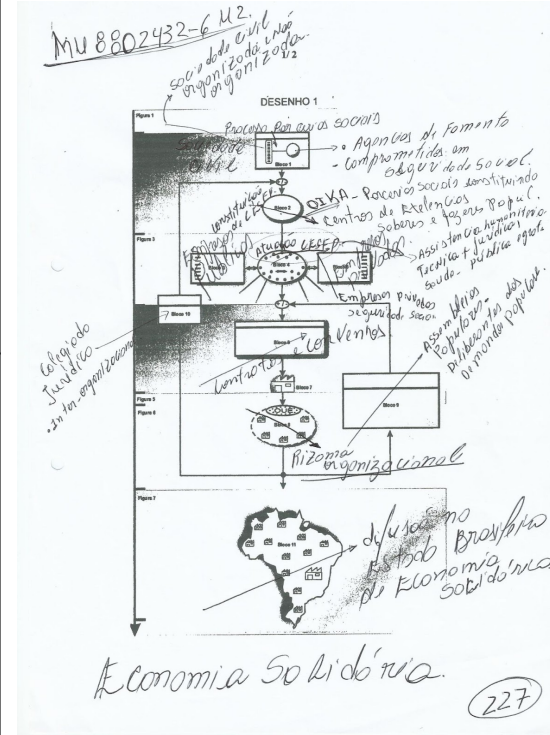 MU 8802432-6 U2.
1/2
sociedade civil
organizada e não
organizada.
DESENHO 1
Figura 1
Processo parcerias sociais
Sociedade
civil
Bloco 1
• Agencias de Fomento
- Comprometidas em
seguridade social.
constituição
Bloco 2
OIKA - Parcerias sociais constituindo
Centros de Exelencias
Saberes e fazeres Popul.
Figura 3
Empresas
Públicas
Atuação CESEP
Bloco 4
Assistencia humanitaria
Tecnica + Jurídica +
saude - pública
Empresas Privadas
seguridade social
Bloco 10
Colegiado
Jurídico
• Inter-organizacional
Contratos e convenhos
Bloco 7
Assembleias
Populares -
Deliberantes das
Demandas Populares.
Figura 5
Figura 6
Bloco 9
Rizoma
organizacional
Figura 7
Bloco 11
difusão no
Estado Brasileiro
de Economia
Solidária
Economia Solidária.
227